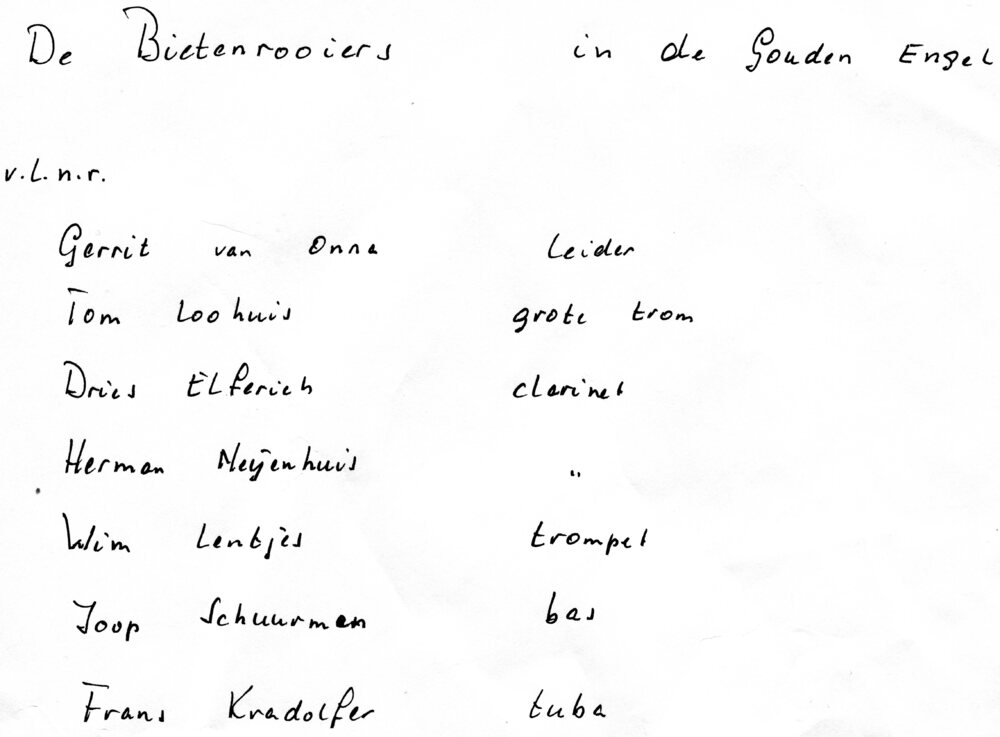 De Bietenrooiers in de Gouden Engel
v.l.n.r.
Gerrit van Onna Leider
Tom Loohuis grote trom
Dries Elferich clarinet
Herman Neijenhuis "
Wim Lentjes trompet
Joop Schuurman bas
Frans Kradolfer tuba